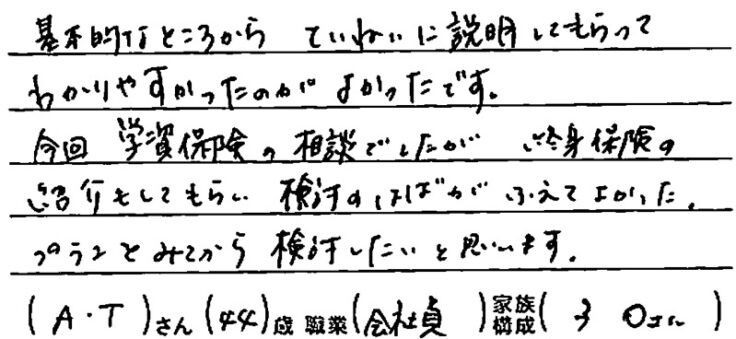 基本的なところから ていねいに説明してもらって
わかりやすかったのがよかったです。
今回 学資保険の相談でしたが 終身保険の
紹介もしてもらい 検討のはばがふえてよかった。
プランをみてから検討したいと思います。
(A・T)さん(44)歳 職業(会社員)家族構成(子 0さい)